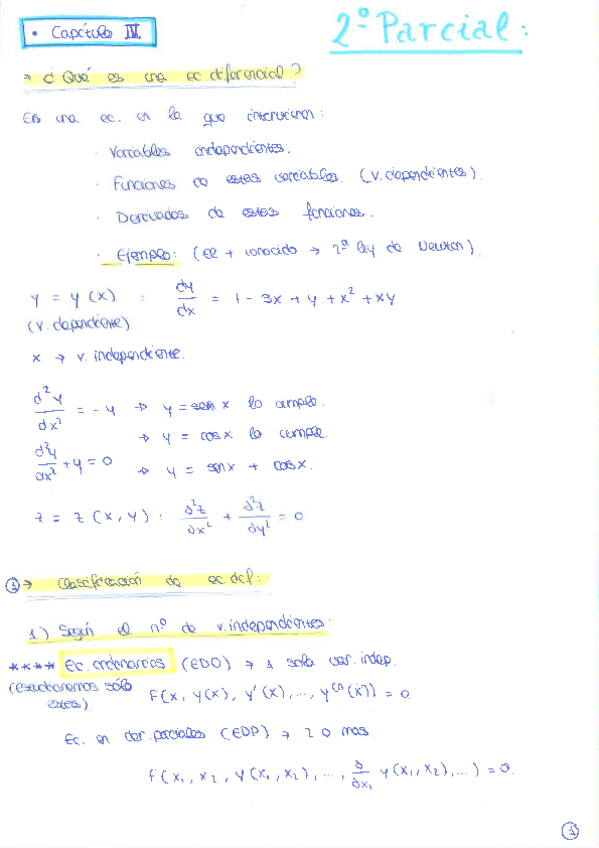 • Capítulo IV
2º Parcial:
→ ¿Qué es una ec diferencial?
Es una ec. en la que intervienen:
· Variables independientes.
· Funciones de estas variables. (v. dependientes).
· Derivadas de estas funciones.
· Ejemplo: (El + conocido → 2ª Ley de Newton)
y = y(x) : dy/dx = 1 - 3x + y + x² + xy
(v. dependiente)
x → v. independiente.
d²y/dx² = -y → y = sen x lo cumple.
→ y = cos x lo cumple.
d²y/dx² + y = 0 → y = sen x + cos x.
z = z(x,y) : ∂²z/∂x² + ∂²z/∂y² = 0
① → Clasificación de ec dif:
1) Según el nº de v. independientes:
**** Ec. ordinarias (EDO) → 1 sola var. indep.
(estudiaremos sólo estas)
F(x, y(x), y'(x), ..., y⁽ⁿ⁾(x)) = 0
Ec. en der. parciales (EDP) → 2 o mas
f(x₁, x₂, y(x₁, x₂), ..., ∂/∂x₁ y(x₁, x₂), ...) = 0.
①